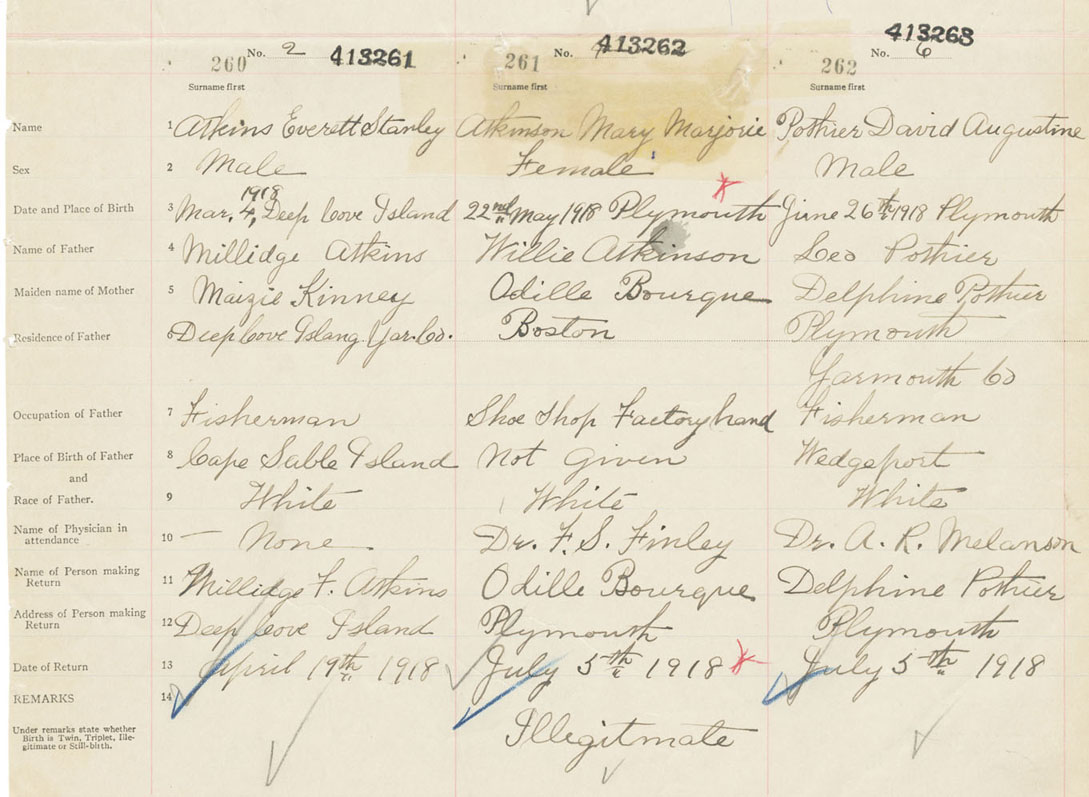 No. 2 413261 No. 413262 413263
No. 6
260 261 262
Surname first Surname first Surname first
Name 1 Atkins Everett Stanley Atkinson Mary Marjorie Pothier David Augustine
Sex 2 Male Female Male
1918
Date and Place of Birth 3 Mar. 4, Deep Cove Island 22nd May 1918 Plymouth June 26th 1918 Plymouth
Name of Father 4 Millidge Atkins Willie Atkinson Leo Pothier
Maiden name of Mother 5 Maizie Kinney Odille Bourque Delphine Pothier
Residence of Father 6 Deep Cove Islang Yar. Co. Boston Plymouth
Yarmouth Co
Occupation of Father 7 Fisherman Shoe Shop Factory hand Fisherman
Place of Birth of Father 8 Cape Sable Island Not Given Wedgeport
and
Race of Father. 9 White White White
Name of Physician in attendance 10 — None Dr. F. S. Finley Dr. A. R. Melanson
Name of Person making Return 11 Millidge F. Atkins Odille Bourque Delphine Pothier
Address of Person making Return 12 Deep Cove Island Plymouth Plymouth
Date of Return 13 April 19th 1918 July 5th 1918 July 5th 1918
REMARKS 14
Under remarks state whether
Birth is Twin, Triplet, Ille-
gitimate or Still-birth.
Illegitmate